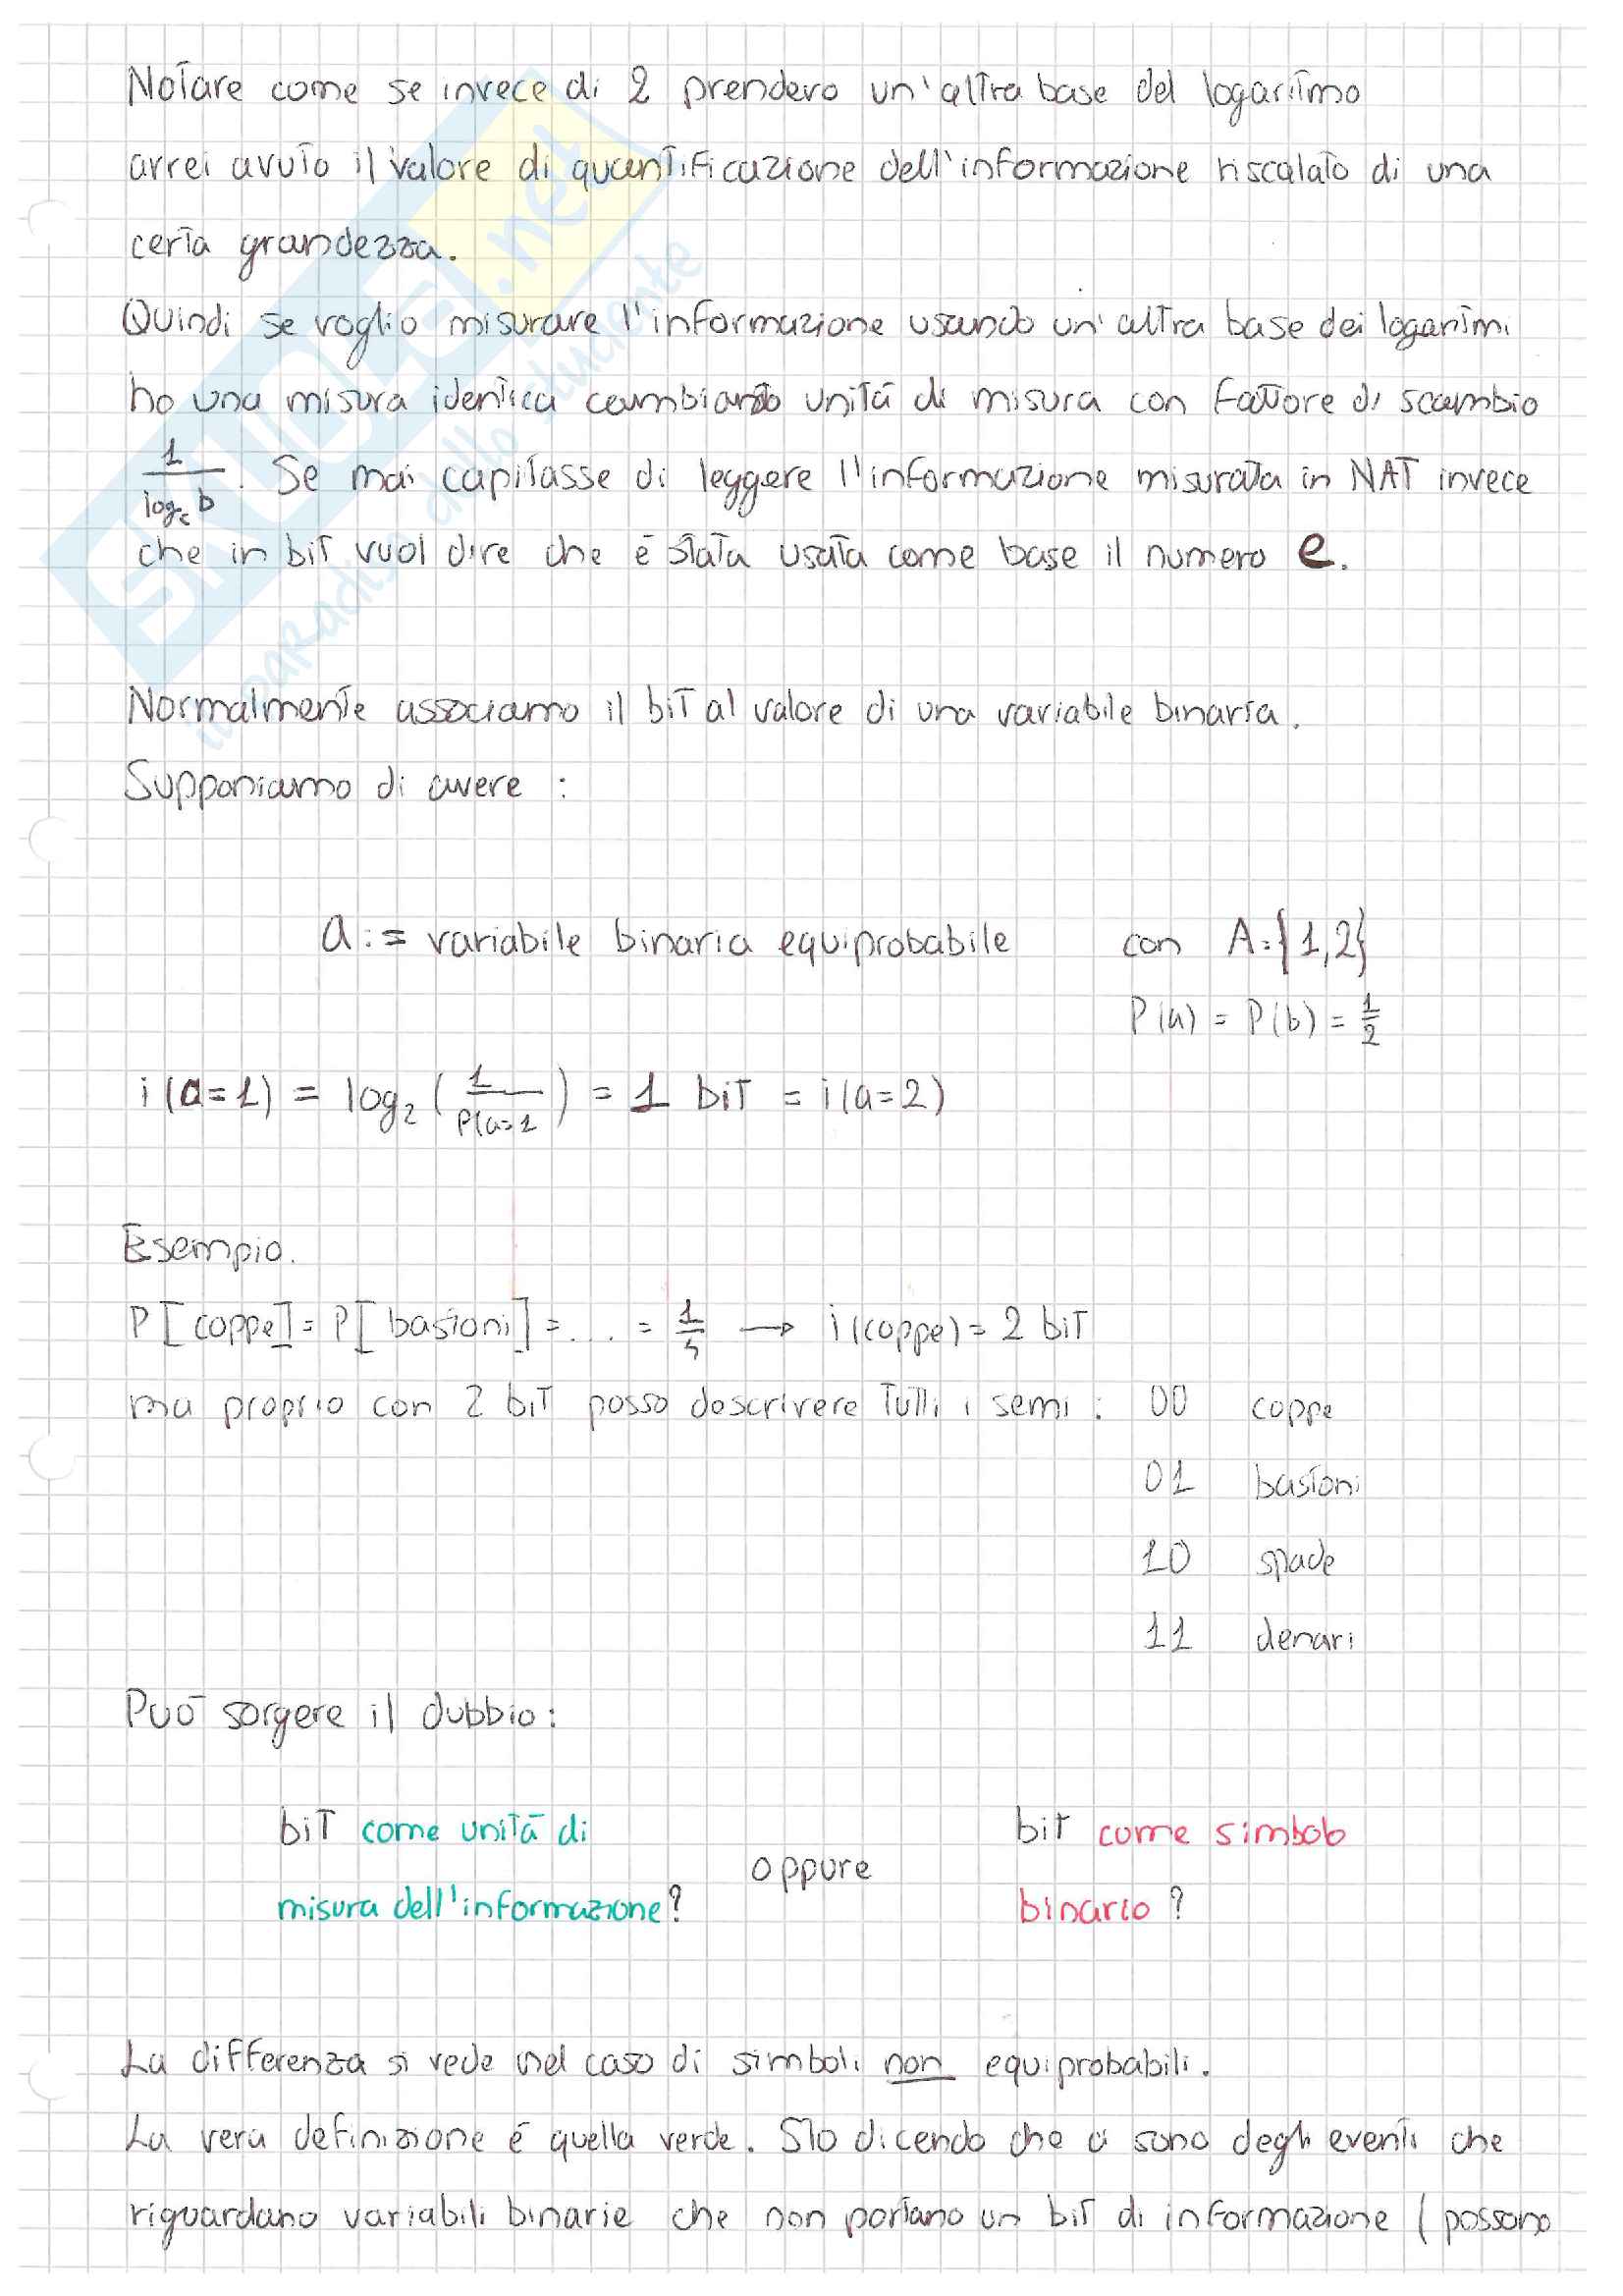 Notare come se invece di 2 prendevo un'altra base del logaritmo
avrei avuto il valore di quantificazione dell'informazione riscalato di una
certa grandezza.
Quindi se voglio misurare l'informazione usando un'altra base dei logaritmi
ho una misura identica cambiando unità di misura con fattore di scambio
1/log_c b . Se mai capitasse di leggere l'informazione misurata in NAT invece
che in bit vuol dire che è stata usata come base il numero e.
Normalmente associamo il bit al valore di una variabile binaria.
Supponiamo di avere :
a := variabile binaria equiprobabile con A={1,2}
P(a) = P(b) = 1/2
i(a=1) = log₂ (1/P(a=1) = 1 bit = i(a=2)
Esempio.
P[coppe]=P[bastoni]=... = 1/4 → i(coppe)= 2 bit
ma proprio con 2 bit posso descrivere tutti i semi : 00 coppe
01 bastoni
10 spade
11 denari
Può sorgere il dubbio:
bit come unità di
misura dell'informazione?
oppure
bit come simbolo
binario ?
La differenza si vede nel caso di simboli non equiprobabili.
La vera definizione è quella verde. Sto dicendo che ci sono degli eventi che
riguardano variabili binarie che non portano un bit di informazione ( possono
SKUOLA.net
il paradiso dello studente